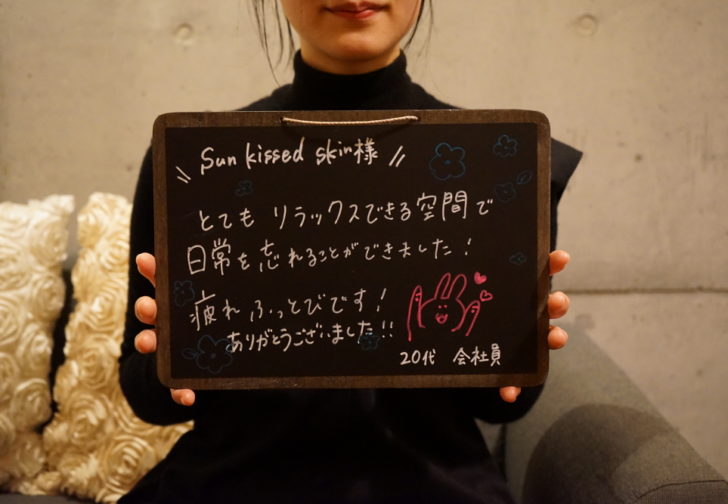 \\ Sun kissed skin様 //
とても リラックスできる空間で
日常を忘れることができました!
疲れ ふっとびです!
ありがとうございました!!
20代 会社員